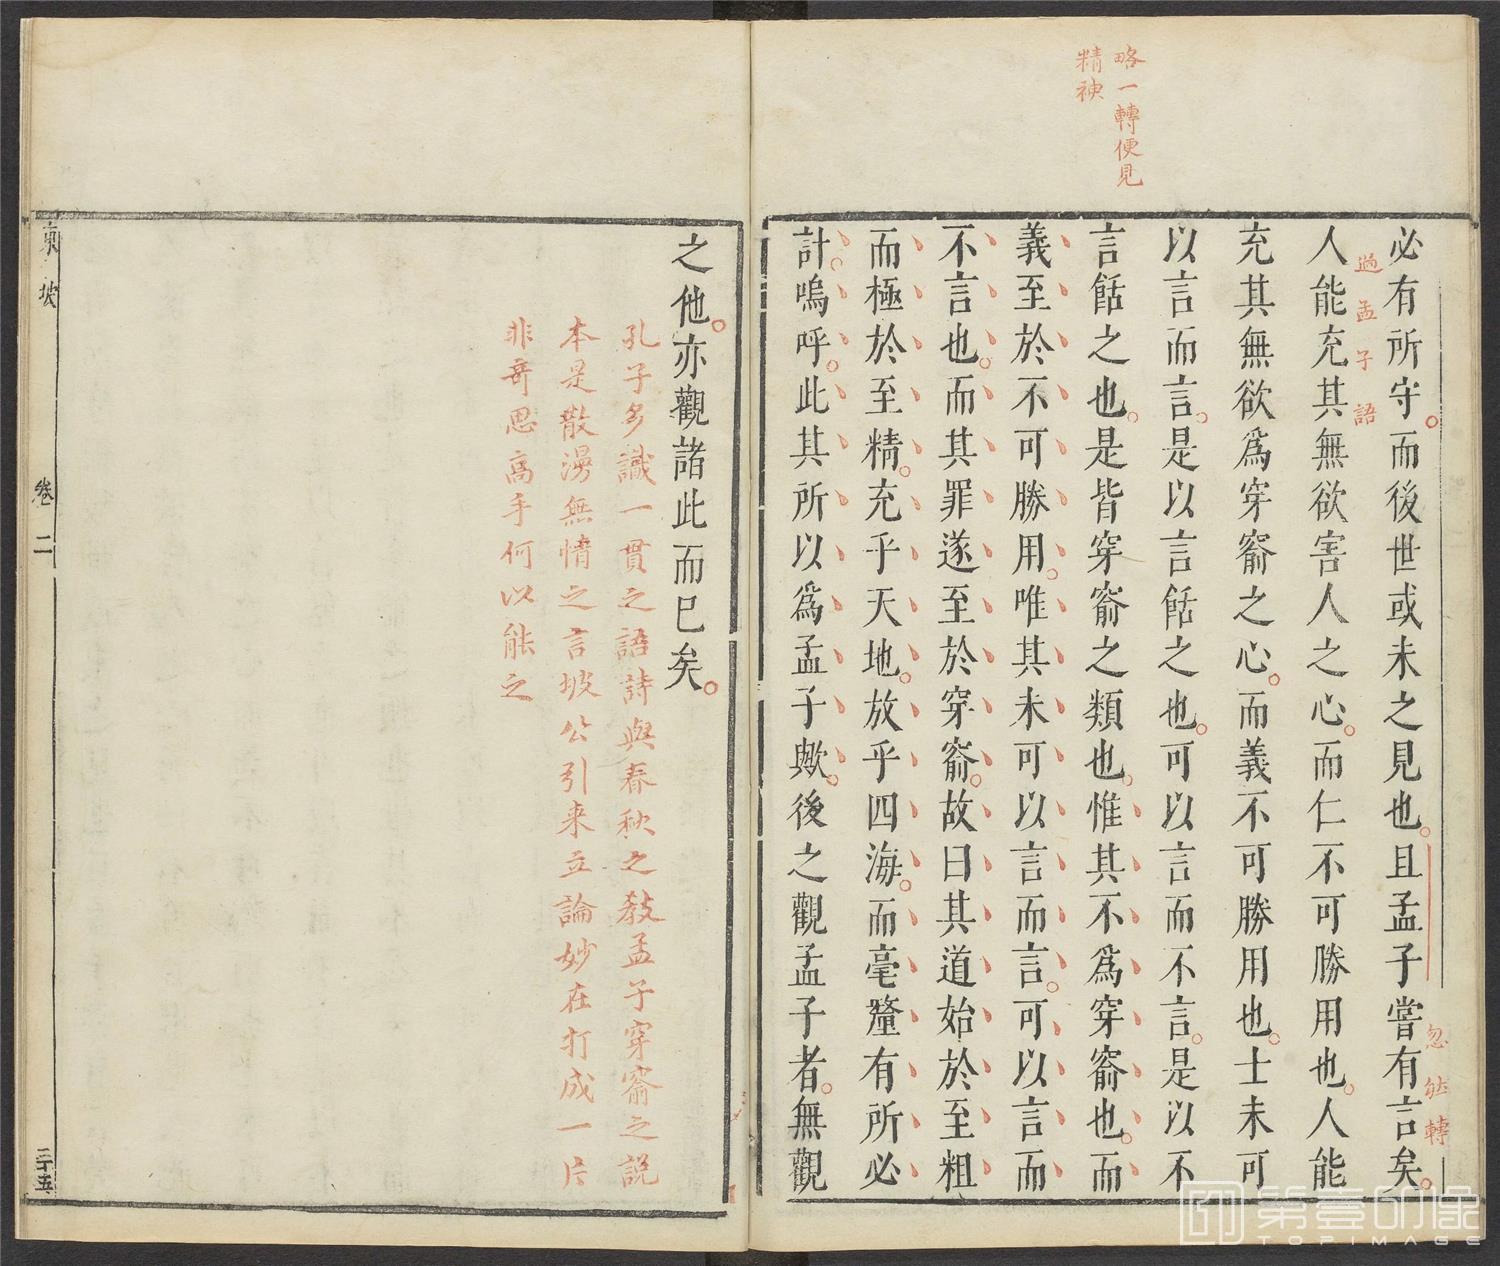 略一轉便見
精神
必有所守而後世或未之見也且孟子嘗有言矣
忽然轉
過孟子語
人能充其無欲害人之心而仁不可勝用也人能
充其無欲爲穿窬之心而義不可勝用也士未可
以言而言是以言餂之也可以言而不言是以不
言餂之也是皆穿窬之類也惟其不爲穿窬也而
義至於不可勝用唯其未可以言而言可以言而
不言也而其罪遂至於穿窬故曰其道始於至粗
而極於至精充乎天地放乎四海而毫釐有所必
計嗚呼此其所以爲孟子歟後之觀孟子者無觀
之他亦觀諸此而已矣
孔子多識一貫之語詩與春秋之教孟子穿窬之說
本是散漫無情之言坡公引来立論妙在打成一片
非奇思高手何以能之
東坡
卷二
三十五
第壹印像
TOPIMAGE